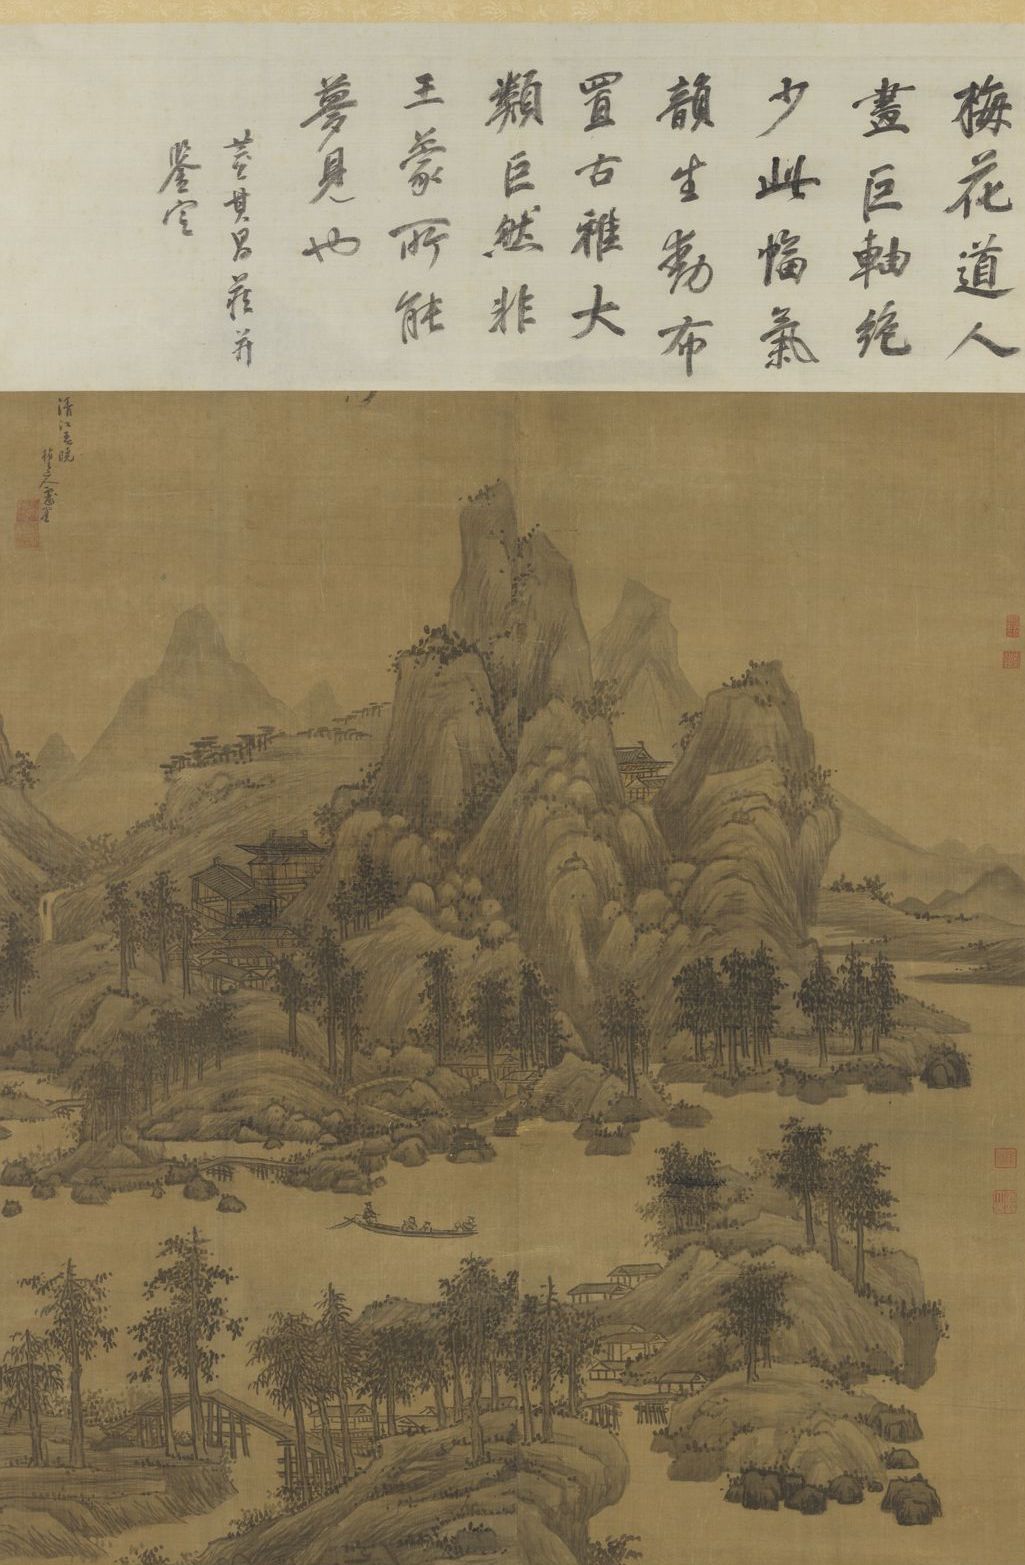 梅花道人
畫巨軸絕
少此幅氣
韻生動布
置古雅大
類巨然非
王蒙所能
夢見也
董其昌藏并
鑒定
清江春曉
梅道人戲墨